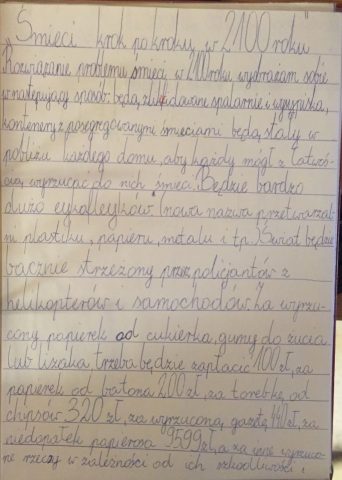 "Śmieci krok po kroku w 2100 roku"
Rozwiązanie problemu śmieci w 2100 roku wyobrażam sobie
w następujący sposób: będą zlikwidowane spalarnie i wysypiska,
kontenery z posegregowanymi śmieciami będą stały w
pobliżu każdego domu, aby każdy mógł z łatwoś-
cią wyrzucać do nich śmieci. Będzie bardzo
dużo cykaleyków (nowa nazwa przetwarzal-
ni plastiku, papieru, metalu i t.p.) Świat będzie
bacznie strzeżony przez policjantów z
helikopterów i samochodów. Za wyrzu-
cony papierek od cukierka, gumy do żucia
lub lizaka, trzeba będzie zapłacić 100 zł, za
papierek od batona 200 zł, za torebkę od
chipsów 320 zł, za wyrzuconą gazetę 440 zł, za
niedopałek papierosa 9599 zł, a za inne wyrzuco-
ne rzeczy w zależności od ich szkodliwości i